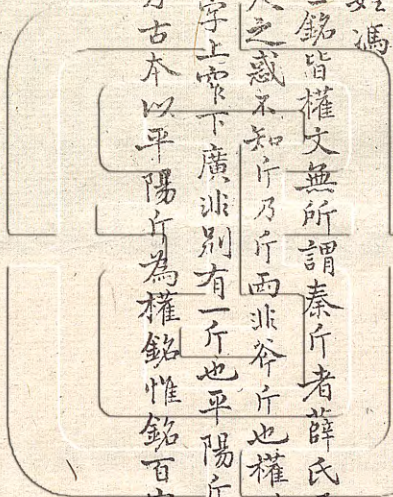 馮
銘皆權文無所謂秦斤者薛氏
之惑不知斤乃斤兩非斧斤也權
字上窄下廣非别有一斤也平陽斤
古本以平陽斤為權銘惟銘百